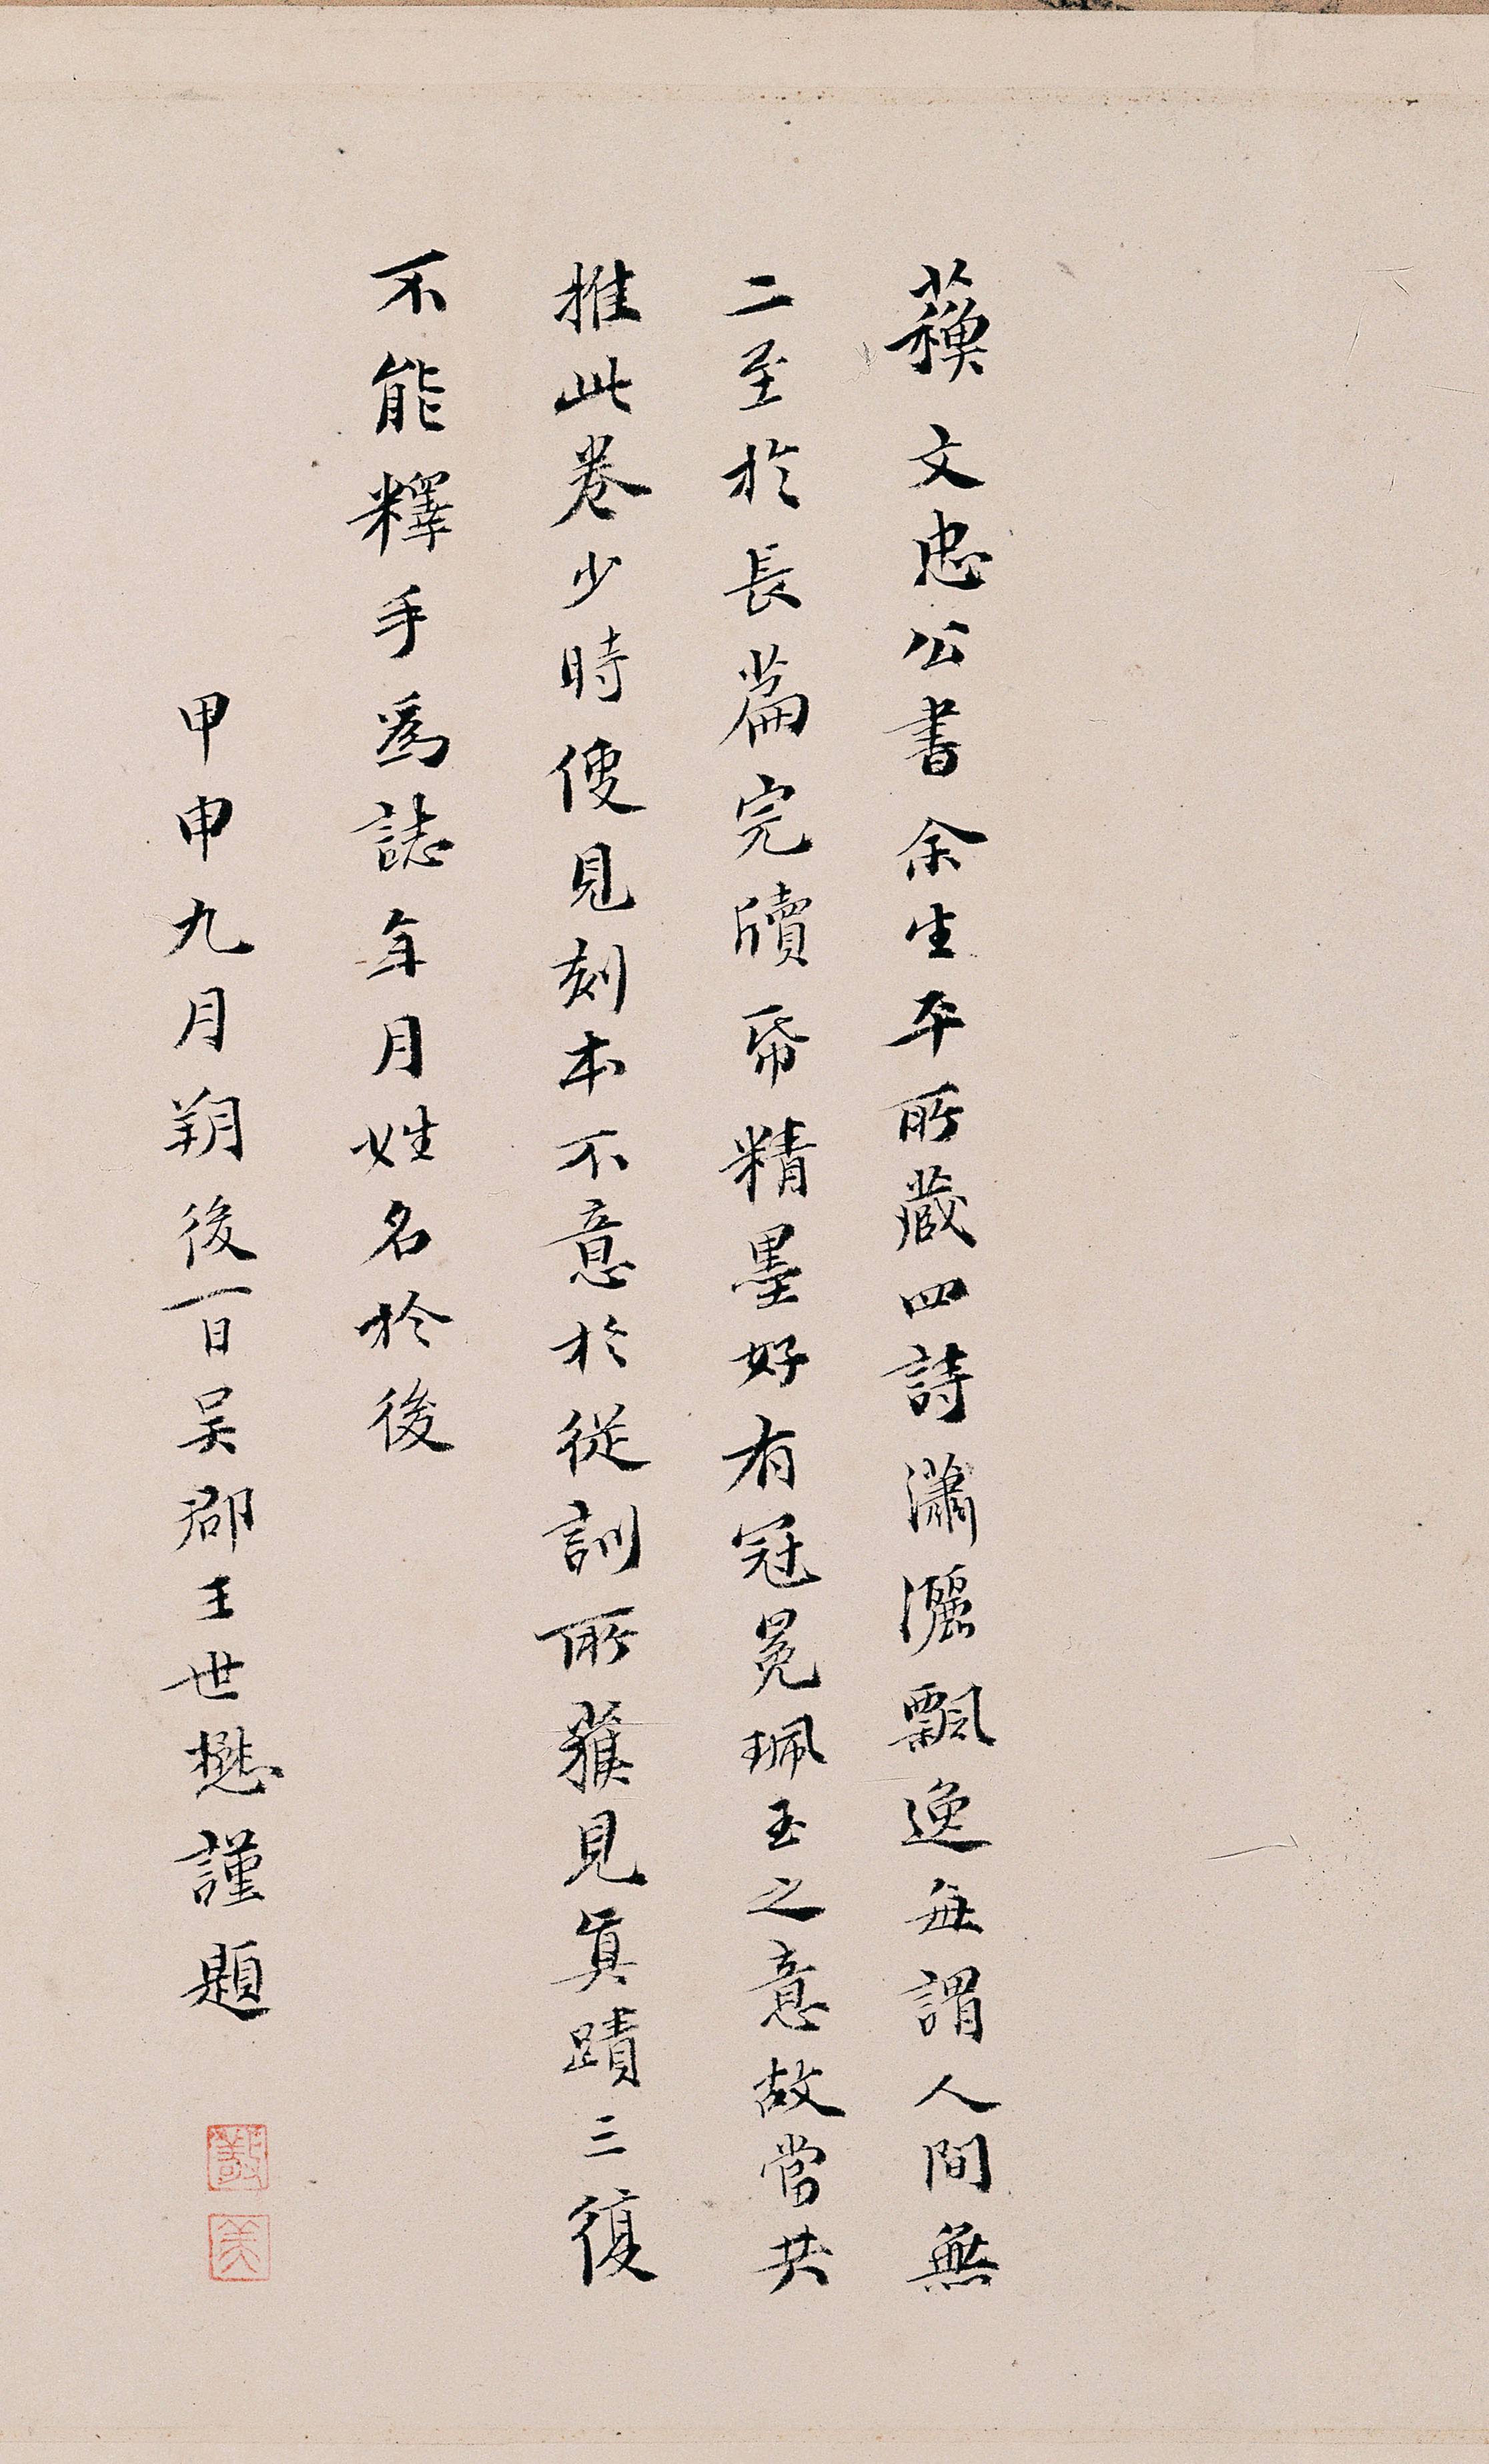 蘓文忠公書余生平所藏四詩瀟灑飄逸每謂人間無
二至於長篇完牘帋精墨好有冠冕珮玉之意故當共
推此卷少時便見刻本不意於從訓所獲見真蹟三復
不能釋手為誌年月姓名於後
甲申九月朔後一日吳郡王世懋謹題
敬
美